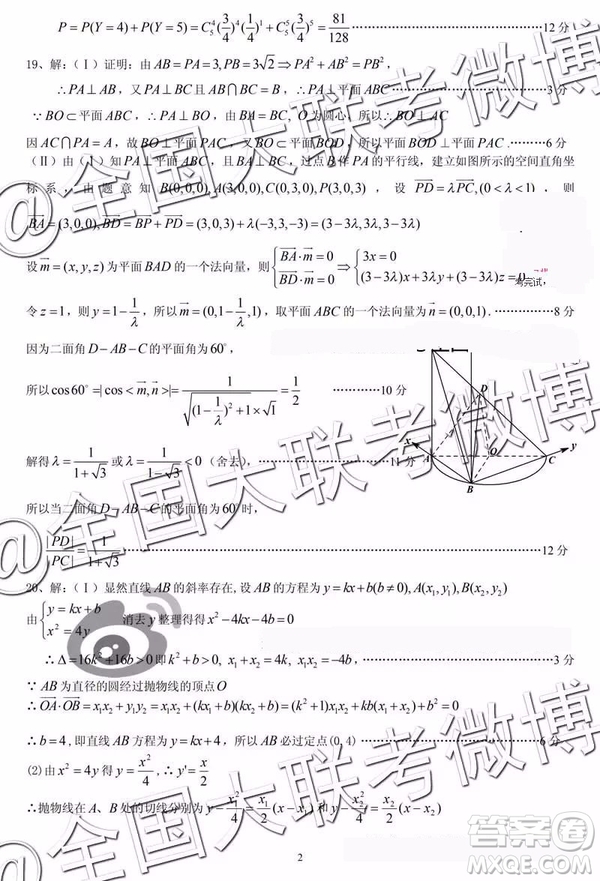 P = P(Y = 4) + P(Y = 5) = C_5^4 (3/4)^4 (1/4)^1 + C_5^5 (3/4)^5 = 81/128 ………………………………12 分
19、解:(Ⅰ)证明:由 AB = PA = 3, PB = 3√2 ⇒ PA² + AB² = PB²,
∴ PA ⊥ AB, 又 PA ⊥ BC 且 AB⋂BC = B, ∴ PA ⊥ 平面ABC ………………3 分
∵ BO ⊂ 平面 ABC, ∴ PA ⊥ BO, 由 BA = BC, O 为圆心, 所以 ∴ BO ⊥ AC
因 AC⋂PA = A, 故 BO ⊥ 平面 PAC, 又 BO ⊂ 平面 ABC, 平面 PAC ⊥ 平面 ABC. ………6 分
(Ⅱ)由(Ⅰ)知 PA ⊥ 平面 ABC, 且 BA ⊥ BC, 过点 B 作 PA 的平行线, 建立如图所示的空间直角坐
标系, 由题意知 B(0,0,0), A(3,0,0), C(0,3,0), P(3,0,3), 设 PD = λPC, (0 < λ < 1), 则
BA = (3,0,0), BD = BP + PD = (3,0,3) + λ(−3,3,−3) = (3−3λ,3λ,3−3λ)
设 m = (x, y, z) 为平面 BAD 的一个法向量, 则 { BA·m = 0 BD·m = 0 ⇒ { 3x = 0 (3−3λ)x + 3λy + (3−3λ)z = 0
考完试
令 z = 1, 则 y = 1 − 1/λ, 所以 m = (0, 1 − 1/λ, 1), 取平面 ABC 的一个法向量为 n = (0,0,1). ……………8 分
因为二面角 D − AB − C 的平面角为 60°,
所以 cos 60° = |cos < m, n >| = 1/(√((1 − 1/λ)² + 1) × √1) = 1/2 …………10 分
解得 λ = 1/(1+√3) 或 λ = 1/(1−√3) < 0 (舍去), ………………11 分
D
x
A
O
B
C
y
所以当二面角 D − AB − C 的平面角为 60° 时,
|PD|/|PC| = 1/(1+√3) ………………………………12 分
20、解:(Ⅰ)显然直线 AB 的斜率存在, 设 AB 的方程为 y = kx + b(b ≠ 0), A(x₁, y₁), B(x₂, y₂)
由 { y = kx + b x² = 4y 消去 y 整理得得 x² − 4kx − 4b = 0
∴ Δ = 16k² + 16b > 0 即 k² + b > 0, x₁ + x₂ = 4k, x₁x₂ = −4b, ………………………3 分
∵ AB 为直径的圆经过抛物线的顶点 O
∴ OA·OB = x₁x₂ + y₁y₂ = x₁x₂ + (kx₁ + b)(kx₂ + b) = (k² + 1)x₁x₂ + kb(x₁ + x₂) + b²
∴ b = 4, 即直线 AB 方程为 y = kx + 4, 所以 AB 必过定点 (0, 4) ………………6 分
(2)由 x² = 4y 得 y = x²/4, ∴ y' = x/2
∴ 抛物线在 A、B 处的切线分别为 y − x₁²/4 = x₁/2 (x − x₁) 和 y − x₂²/4 = x₂/2 (x − x₂)
2
@全国大联考微博
@全国大联考微博
答案圈
MXQE.COM